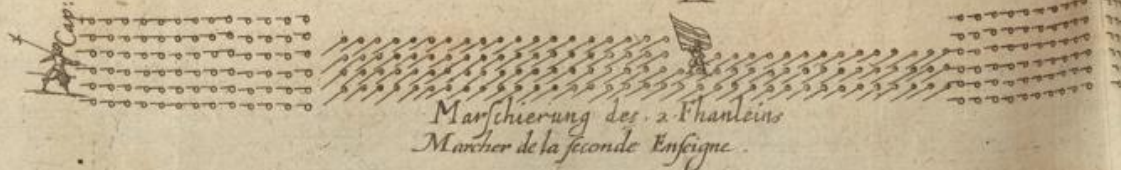 Cap:
Marſchierung des . 2 . Fhanleins
Marcher de la ſeconde Enſeigne .